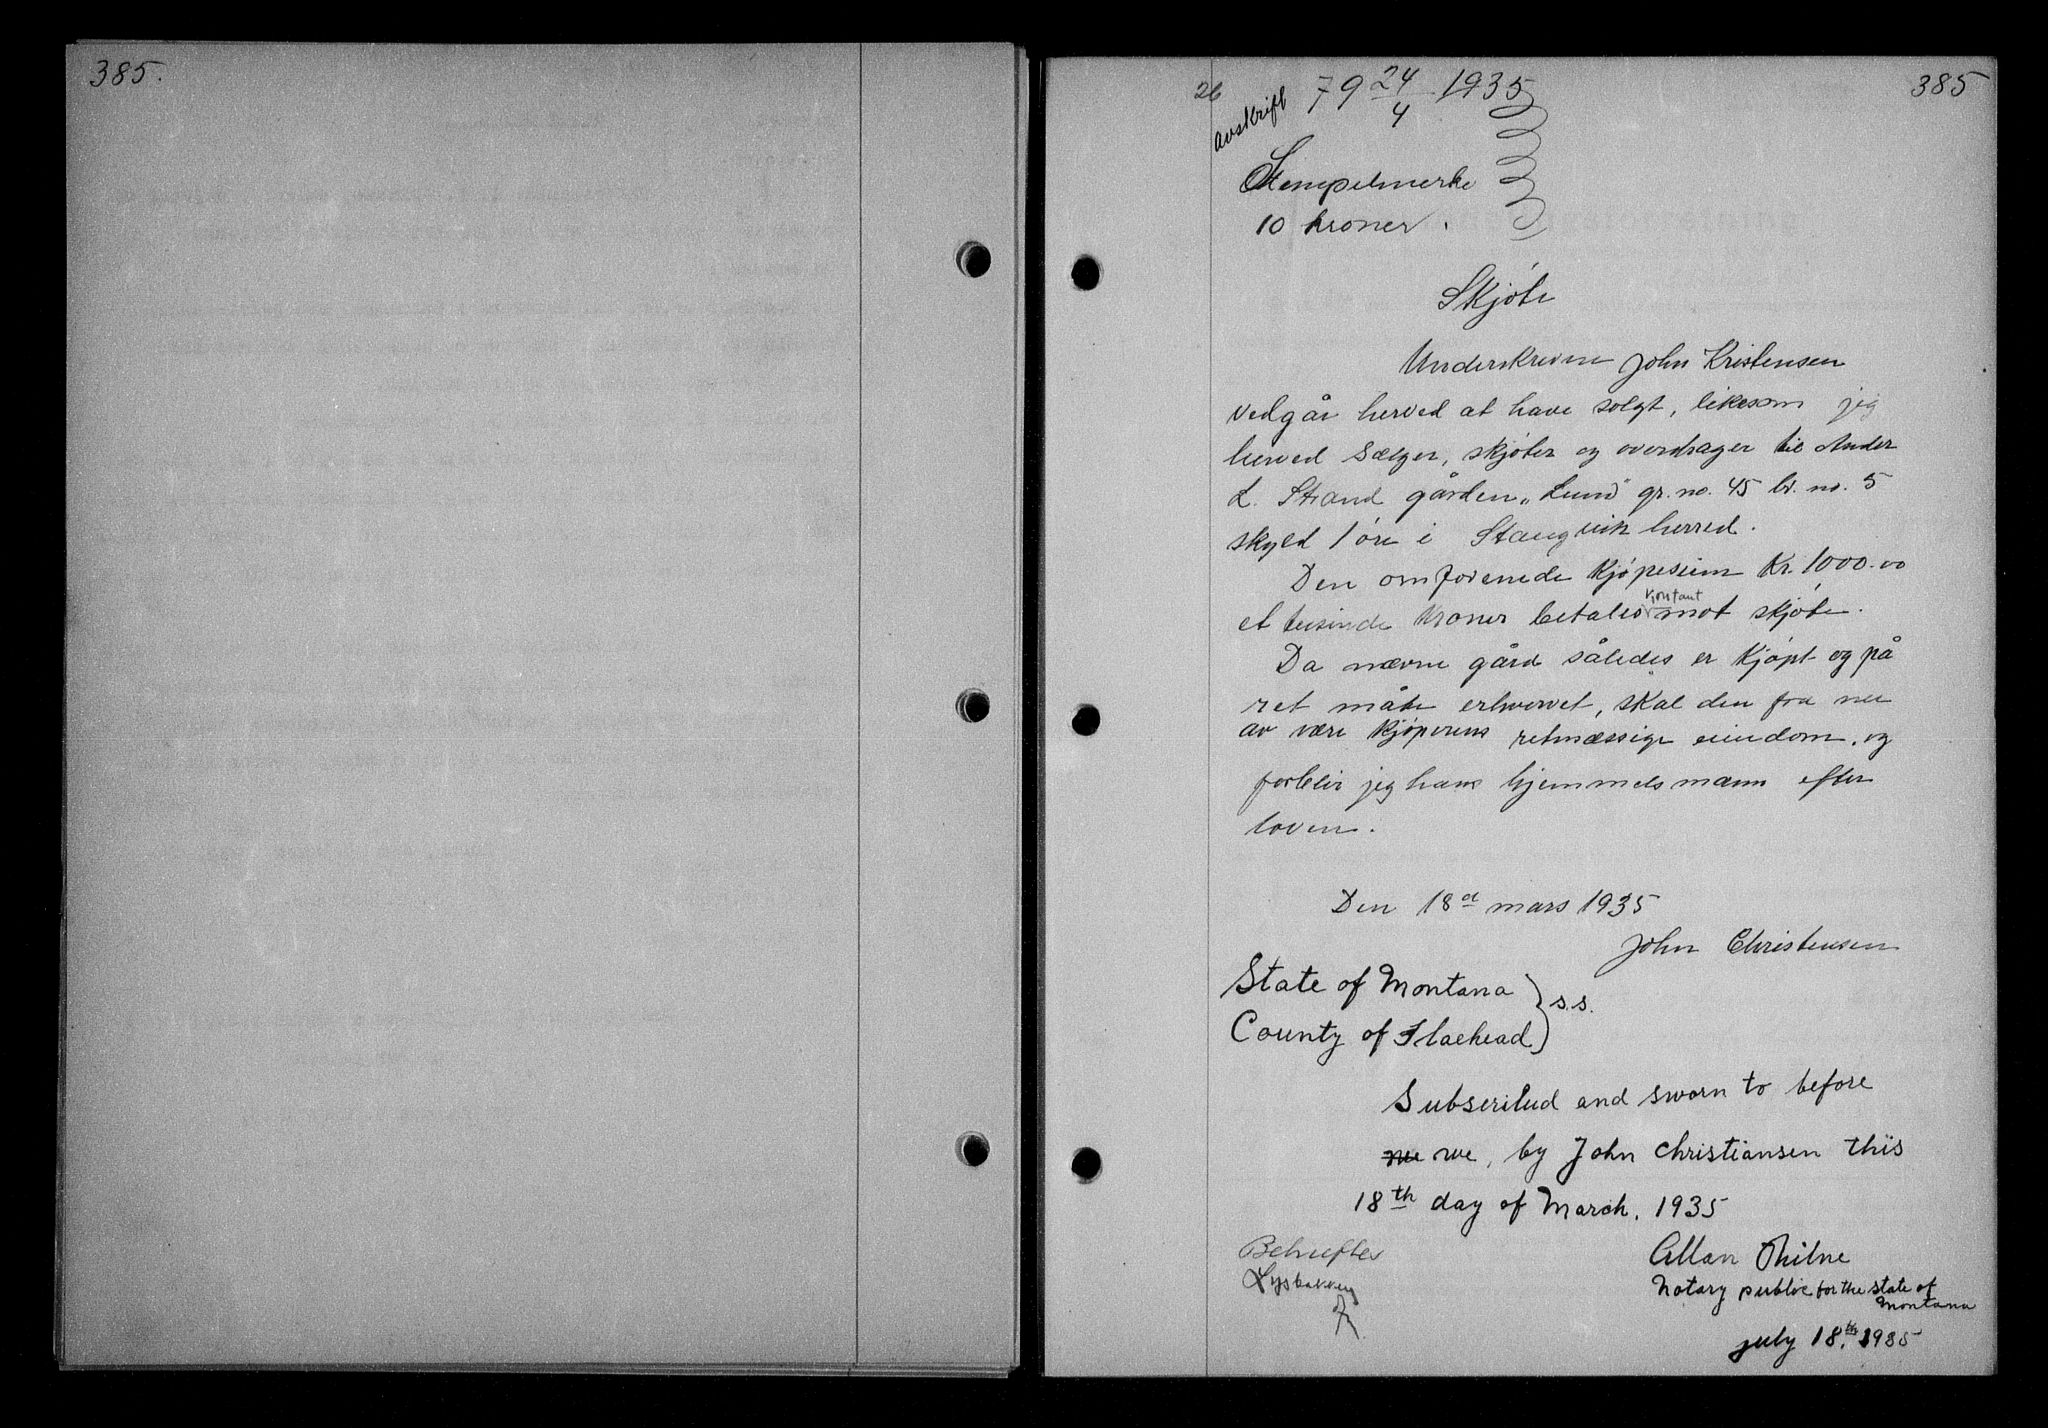 385.
26 79 24/4 1935 385
Avskrift
Stempelmerke
10 kroner.
Skjøte
Underskrevne John Kristensen
vedgår herved at have solgt, likesom jeg
herved sælger, skjøter og overdrager til Ander
L. Strand gården „Lund" gr. no. 45 br. no. 5
skyld 1 øre i Stangvik herred.
Den omforenede kjøpesum Kr. 1000.00
et tusinde kroner betales kontant mot skjøte.
Da nævne gård således er kjøpt og på
ret måte erhvervet, skal den fra nu
av være kjøperens retmæssige eiendom, og
forblir jeg hans hjemmelsmann efter
loven.
Den 18d mars 1935
John Christensen
State of Montana } s.s.
County of Flaehead
Subscribed and sworn to before
me we, by John Christiansen this
18th day of March, 1935
Bekreftes Allan Philne
Lysbakken Notary public for the state of
Montana
july 18.th 1935